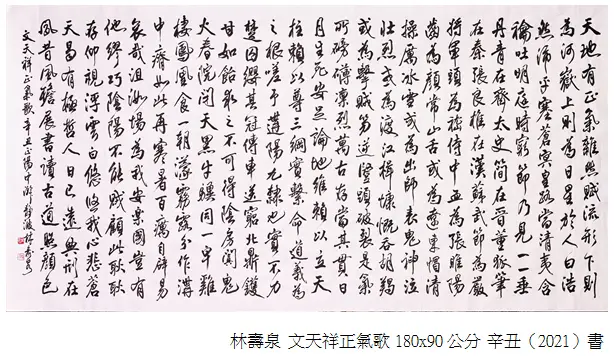 天地有正氣雜然賦流形下則
為河嶽上則為日星於人曰浩
然沛乎塞蒼冥皇路當清夷含
龢吐明庭時窮節乃見一一垂
丹青在齊太史簡在晉董狐筆
在秦張良椎在漢蘇武節為嚴
將軍頭為嵇侍中血為張睢陽
齒為顏常山舌或為遼東帽清
操厲冰雪或為出師表鬼神泣
壯烈或為渡江楫慷慨吞胡羯
或為擊賊笏逆豎頭破裂是氣
所磅礴凜烈萬古存當其貫日
月生死安足論地維賴以立天
柱賴以尊三綱實繫命道義為
之根嗟予遘陽九隸也實不力
楚囚纓其冠傳車送窮北鼎鑊
甘如飴求之不可得陰房闃鬼
火春院閟天黑牛驥同一牢雞
棲鳳凰食一朝濛霧露分作溝
中瘠如此再寒暑百癘自辟易
哀哉沮洳場為我安樂國豈有
他繆巧陰陽不能賊顧此耿耿
存仰視浮雲白悠悠我心悲蒼
天曷有極哲人日已遠典刑在
夙昔風簷展書讀古道照顏色
文天祥正氣歌辛丑正陽中澣靜波林壽泉
林壽泉 文天祥正氣歌 180x90 公分 辛丑（2021）書